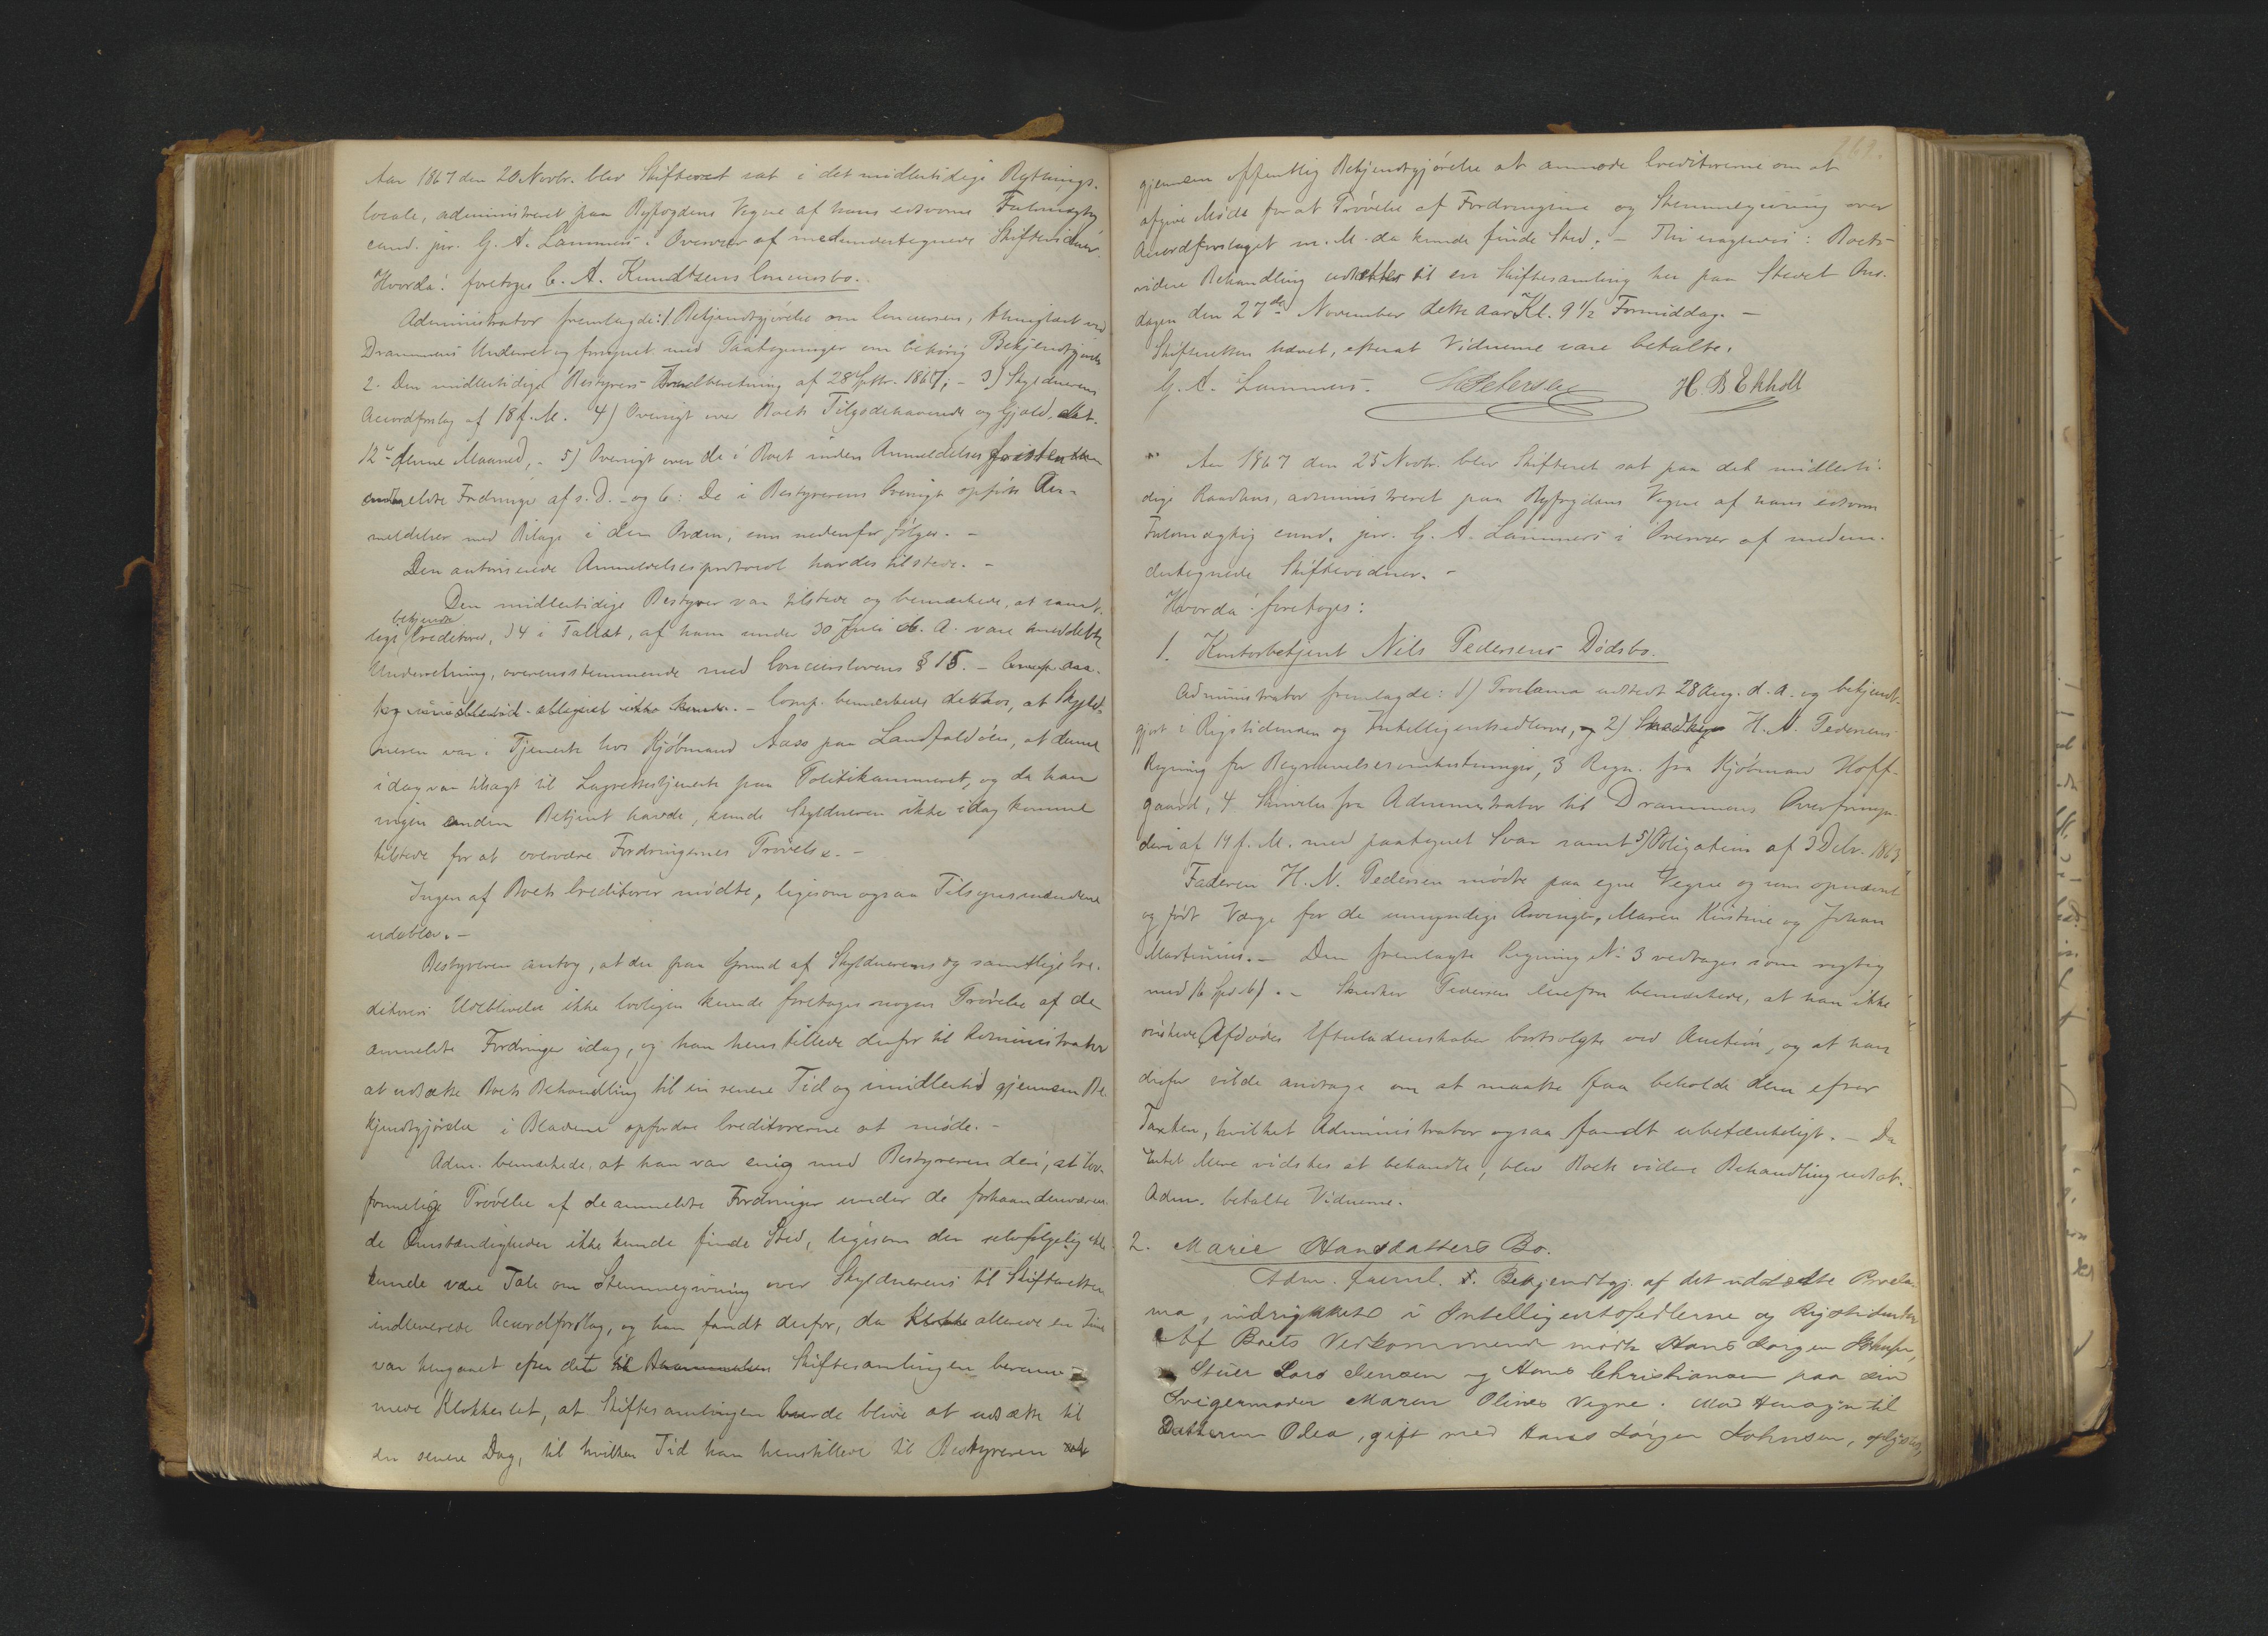 Aar 1867 den 20 Novbr. blev Skifteret sat i det midlertidige Rythings-
locale, administreret paa Byfogdens Vegne af hans edsvorne Fuldmægtig
cand. jur. G. A. Lammers i Overvær af medundertegnede Skiftevidner.
Hvorda: foretoges C. A. Knudtzens Concursbo.
Administrator fremlagde: 1. Bekjendtgjørelse om Concursen, thinglæst ved
Drammens Underret og forsynet med Paategninger om behørig Bekjendtgjørelse
2. Den midlertidige Bestyrers Indberetning af 28 Septbr. 1867, - 3) Skyldnerens
Accordforslag af 18 f. M. 4) Oversigt over Boets Tilgodehavende og Gjæld, dat.
12te denne Maaned, - 5) Oversigt over de i Boet inden Anmeldelsesfristen
anmeldte Fordringer af s. D. - og 6: De i Bestyrerens Oversigt opførte An-
meldelser med Bilage i den Orden, som nedenfor følger. -
Den autoriserede Anmeldelsesprotocol havdes tilstede. -
Den midlertidige Bestyrer var tilstede og bemærkede, at samt-
bekjendte
lige Creditorer, 34 i Tallet, af ham under 30 Juli d. A. vare meddelte
Underretning, overensstemmende med Concurslovens § 15. -
Comp. bemærkede derhos, at Skyld-
neren var i Tjeneste hos Kjøbmand Aass paa Landfaldøen, at denne
idag var tilsagt til Lagrettestjeneste paa Politikammeret, og da han
ingen anden Betjent havde, kunde Skyldneren ikke idag komme
tilstede for at overvære Fordringernes Prøvelse. -
Ingen af Boets Creditorer mødte, ligesom ogsaa Tilsynsmændene
udeblev. -
Bestyreren antog, at der paa Grund af Skyldnerens og samtlige Cre-
ditorers Udeblivelse ikke lovligen kunde foretages nogen Prøvelse af de
anmeldte Fordringer idag, og han henstillede derfor til Administrator
at udsætte Boets Behandling til en senere Tid og imidlertid gjennem Be-
kjendtgjørelse i Bladene opfordre Creditorerne at møde. -
Adm. bemærkede, at han var enig med Bestyreren deri, at lov-
formelig Prøvelse af de anmeldte Fordringer under de forhaandenværen-
de Omstændigheder ikke kunde finde Sted, ligesom der selvfølgelig ikke
kunde være Tale om Stemmegivning over Skyldnerens til Skifteretten
indleverede Accordforslag, og han fandt derfor, da allerede en Time
var hengaaet efter det til Skiftesamlingen beram-
mede Klokkeslet, at Skiftesamlingen burde blive at udsætte til
en senere Dag, til hvilken Tid han henstillede til Bestyreren
261.
gjennem offentlig Bekjendtgjørelse at anmode Creditorerne om at
afgive Møde for at Prøvelse af Fordringerne og Stemmegivning over
Accordforslaget m. M. da kunde finde Sted. - Thi eragtedes: Boets
videre Behandling udsættes til en Skiftesamling her paa Stedet Ons-
dagen den 27de November dette Aar Kl. 9 1/2 Formiddag. -
Skifteretten hævet, efterat Vidnerne vare betalte.
G. A. Lammers. Petersen H. B Ekholt
Aar 1867 den 25 Novbr. blev Skifteret sat paa det midlerti-
dige Raadhus, administreret paa Byfogdens Vegne af hans edsvorne
Fuldmægtig cand. jur. G. A. Lammers i Overvær af medun-
dertegnede Skiftevidner. -
Hvorda: foretoges:
1. Kontorbetjent Nils Pedersens Dødsbo.
Administrator fremlagde: 1) Proclama udstedt 28 Aug. d. A. og bekjendt-
gjort i Rigstidenden og Intelligentsedlerne, 2) Snedker H. N. Pedersens
Regning for Begravelsesomkostninger, 3 Regn. fra Kjøbmand Hoff-
gaard, 4. Skrivelse fra Administrator til Drammens Overformyn-
deri af 14 f. M. med paategnet Svar samt 5) Obligation af 3 Debr. 1863
Faderen H. N. Pedersen mødte paa egne Vegne og som opnævnt
og født Værge for de umyndige Arvinger, Maren Kristine og Johan
Martinius. - Den fremlagte Regning No 3 vedtoges som rigtig
med . - Snedker Pedersen bemærkede, at han ikke
ønskede Afdødes Efterladenskaber bortsolgte ved Auction, og at han
derfor vilde andrage om at maatte faa beholde dem efter
Taxten, hvilket Administrator ogsaa fandt ubetænkeligt. - Da
Intet Mere vidstes at behandle, blev Boets videre Behandling udsat.
Adm. betalte Vidnerne.
2. Marie Hansdatters Bo.
Adm. freml. 1. Bekjendtgj. af det udstedte Procla-
ma, indrykket i Intelligentssedlerne og Rigstidenden
Af Boets Vedkommende mødte Hans Jørgen Johnsen,
Stuer Lars Jensen og Hans Christiansen paa sin
Svigermoder Maren Olines Vegne. Med Hensyn til
Datteren Olea, gift med Hans Jørgen Johnsen, oplystes,